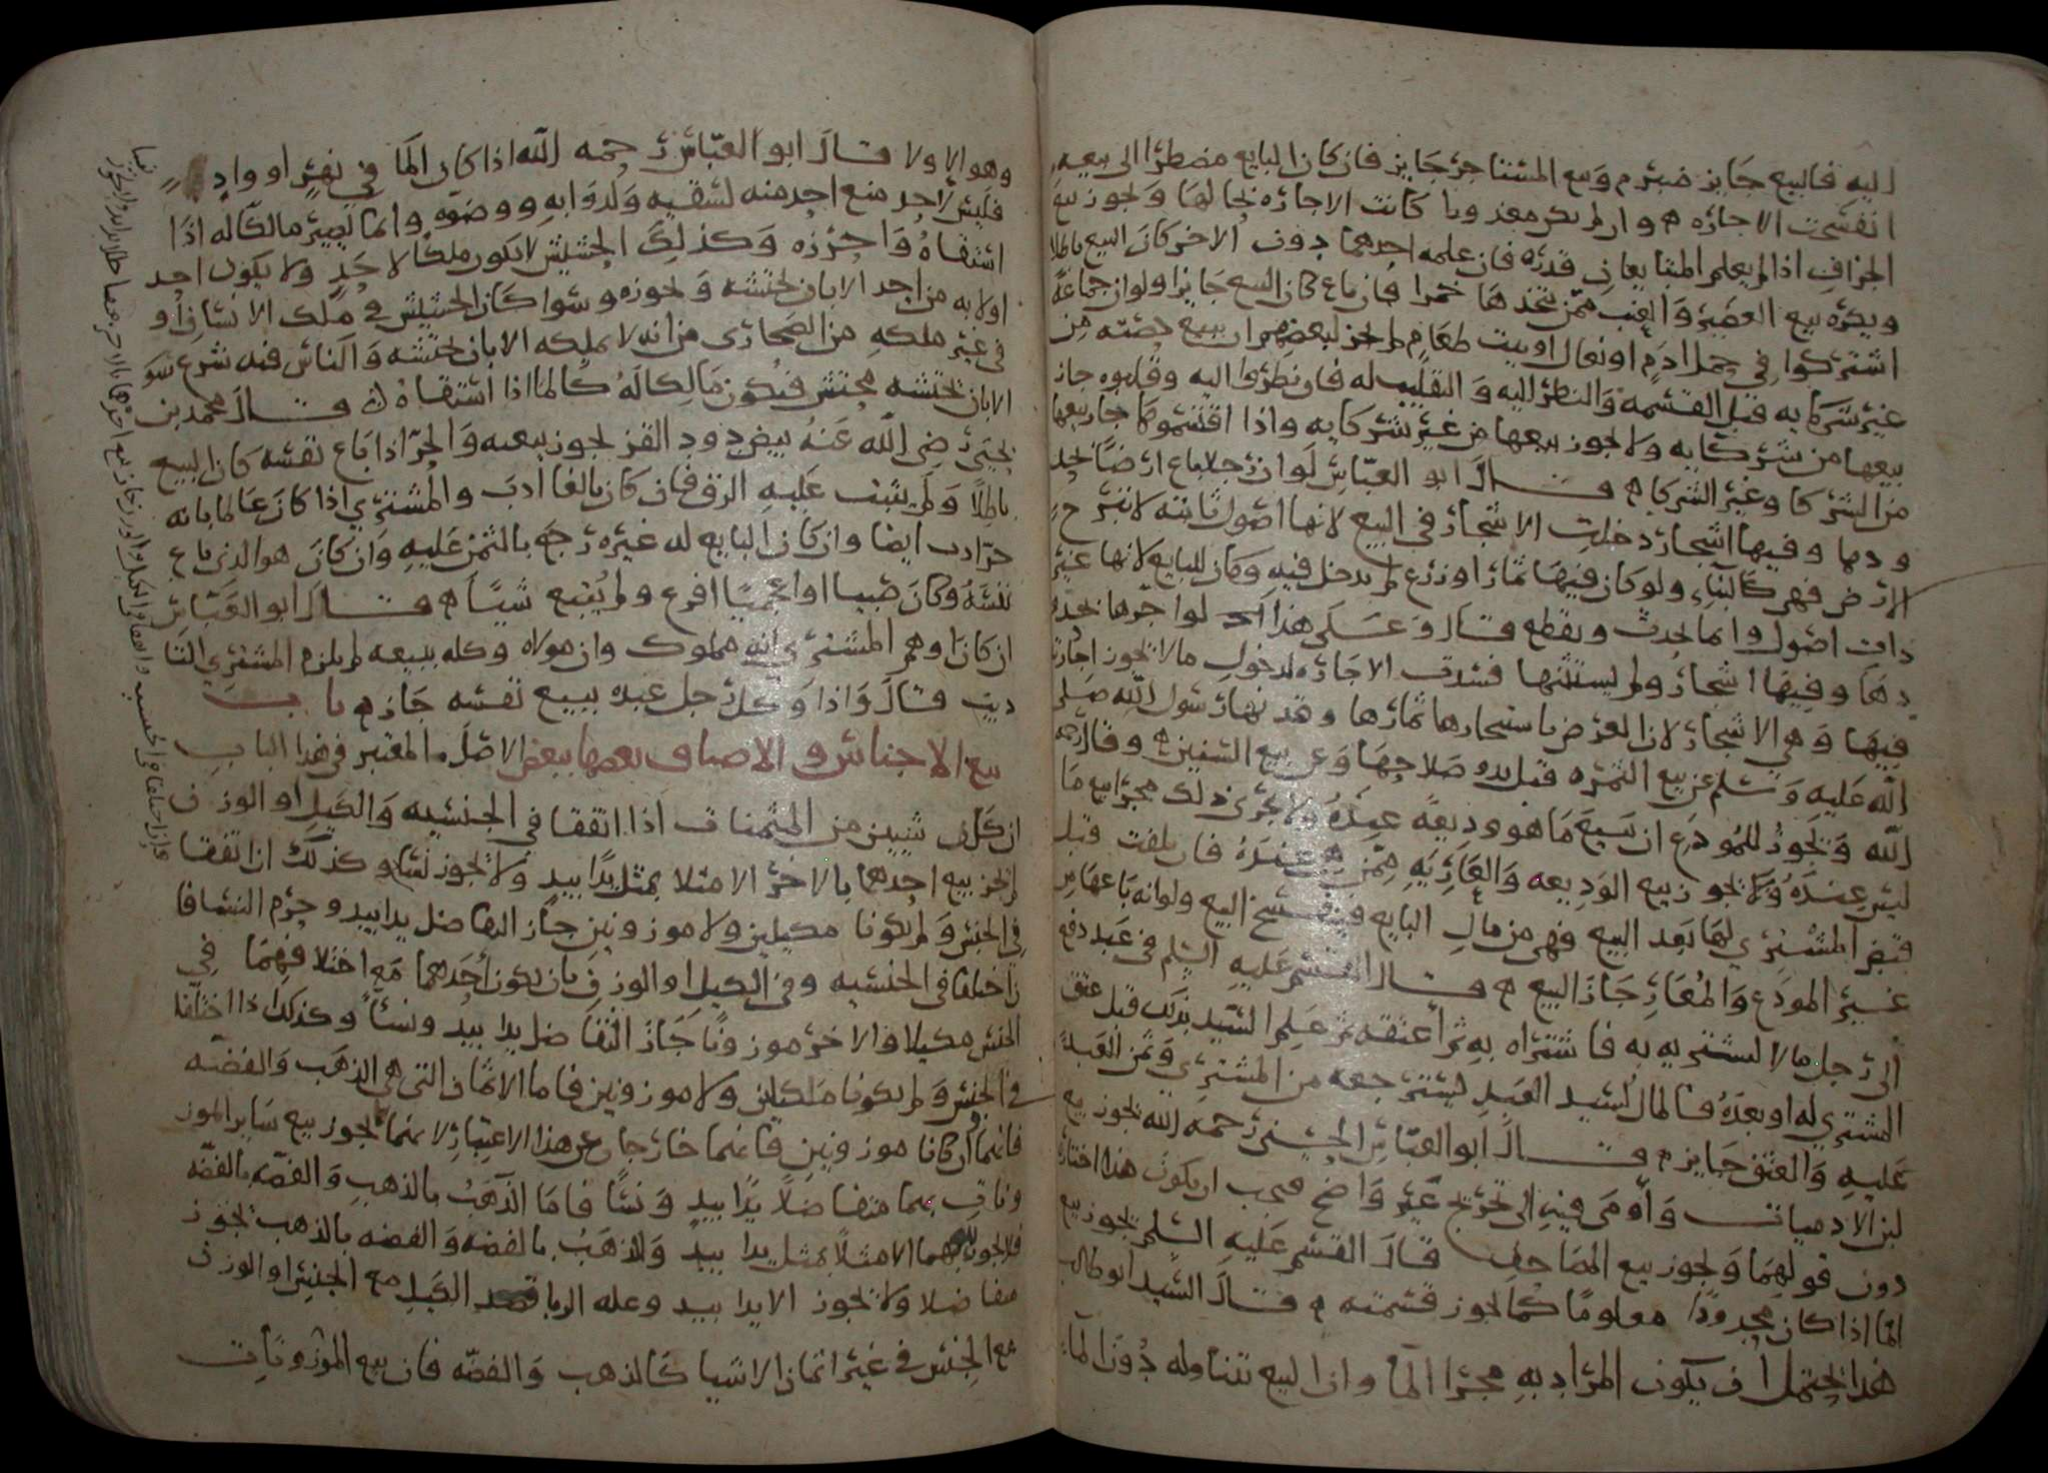 اليه فالبيع جايز مبرم وبيع المستاجر جايز فان كان البايع مضطرا الى بيعه
انفسخت الاجازه وان لم يكن معذورا كانت الاجاره بحالها ويجوز بيع
الجزاف اذا لم يعلم المتبايعان قدره فان علمه احدهما دون الاخر كان البيع باطلا
ويكره بيع العصير والعنب ممن يتخذها خمرا فان باع كان البيع جايزا ولو ان جماعة
اشتركوا في حمل ادم او نعال او بيت طعام لم يجز لبعضهم ان يبيع حصته من
غير شركايه قبل القسمه والنظر اليه والتقليب له فان نظروا اليه وقلبوه جاز
بيعها من شركايه ولا يجوز بيعها من غير شركايه واذا اقتسموها جاز بيعها
من الشركا وغير الشركا قال ابو العباس لو ان رجلا باع ارضا بحد
ودها وفيها اشجار دخلت الاشجار في البيع لانها اصول ثابته لا تبرح
الارض فهي كالبناء ولو كان فيها ثمار او زرع لم يدخل فيه وكان للبايع لانها غير
ذات اصول وانما يحدث ويقطع قال وعلى هذا لو اجرها بحدو
دها وفيها اشجار ولم يستثنها فسدت الاجاره لدخول ما لا يجوز اجارته
فيها وهي الاشجار لان الغرض باستيجارها ثمارها وقد نها رسول الله صلى
الله عليه وسلم عن بيع الثمره قبل بدو صلاحها وعن بيع السنين وقال رحمه
الله ويجوز للمودع ان يبيع ما هو وديعة عنده ولا يجري ذلك مجرا بيع ما
ليس عنده ولا يجوز بيع الوديعه والعاريه ممن هي عنده فان تلفت قبل
قبض المشتري لها بعد البيع فهي من مال البايع وينفسخ البيع ولو انه باعها من
غير المودع والمعار جاز البيع قال القسم عليه السلم في عبد دفع
الى رجل مالا ليشتريه به فاشتراه به ثم اعتقه ثم علم السيد بذلك قبل عتق
المشتري له او بعده فالمال لسيد العبد ليسترجعه من المشتري وثمن العبد
عليه والعتق جايز قال ابو العباس الحسني رحمه الله يجوز بيع
لبن الادميات واومى فيه الى تخريج غير واضح فيجب ان يكون هذا اختاره
دون قولهما ويجوز بيع المصاحف قال القسم عليه السلم يجوز بيع
الما اذا كان محدودا معلوما كما يجوز قسمته قال السيد ابو طالب
هذا يحتمل ان يكون المراد به مجرا الما وان البيع تناوله دون الما
وهو الاولا قال ابو العباس رحمه الله اذا كان الما في نهر او واد
فليس لاحد منع احد منه لسقيه ولدوابه ووضوه وانما يصير مالكا له اذا
استقاه واحرزه وكذلك الحشيش لا يكون ملكا لاحد ولا يكون احد
اولا به من احد الا بان يحتشه ويحوزه وسوا كان الحشيش في ملك الانسان او
في غير ملكه من الصحارى من انه لا يملكه الا بان يحتشه والناس فيه شرع سوا
الا بان يحتشه محتش فيكون مالكا له كالما اذا استقاه قال محمد بن
يحيى رضي الله عنه بيض دود القز يجوز بيعه والحر اذا باع نفسه كان البيع
باطلا ولم يثبت عليه الرق فان كان بالغا ادب والمشتري اذا كان عالما بانه
حر ادب ايضا وان كان البايع له غيره رجع بالثمن عليه وان كان هو الذي باع
نفسه وكان صبيا او اعجميا افزع ولم يتبع شيئا قال ابو العباس
ان كان اوهم المشتري انه مملوك وان مولاه وكله ببيعه لم يلزم المشتري التا
ديب قال واذا وكل رجل عبده ببيع نفسه جاز باب
بيع الاجناس والاصناف بعضها ببعض الاصل المعتبر في هذا الباب
ان كل شيين من المثمنات اذا اتفقا في الجنسيه والكيل او الوزن
لم يجز بيع احدهما بالاخر الا مثلا بمثل يدا بيد ولا يجوز نسا وكذلك ان اتفقا
في الجنس ولم يكونا مكيلين ولا موزونين جاز التفاضل يدا بيد وحرم النسا فا
ن اختلفا في الجنسيه وفي الكيل او الوزن بان يكون احدهما مع اختلافهما في
الجنس مكيلا والاخر موزونا جاز التفاضل يدا بيد ونسا وكذلك اذا اختلفا
في الجنس ولم يكونا مكيلين ولا موزونين فاما الاثمان التي هي الذهب والفضه
فانهما وان كانا موزونين فانهما خارجان عن هذا الاعتبار لانهما يجوز بيع ساير الموز
ونات بهما متفاضلا يدا بيد ونسا فاما الذهب بالذهب والفضه بالفضه
فلا يجوز بيعهما الا مثلا بمثل يدا بيد والذهب بالفضه والفضه بالذهب يجوز
متفاضلا ولا يجوز الا يدا بيد وعله الربا الكيل مع الجنس او الوزن
مع الجنس في غير اثمان الاشيا كالذهب والفضه فان بيع الموزونات